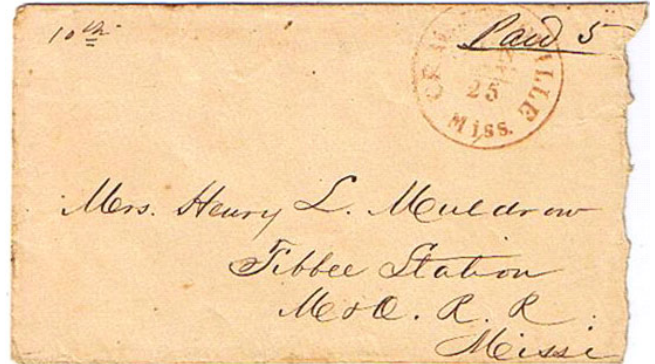 10th
Paid 5
25
Miss.
Mrs. Henry L. Muldrow
Tibbee Station
M & O. R. R.
Missi